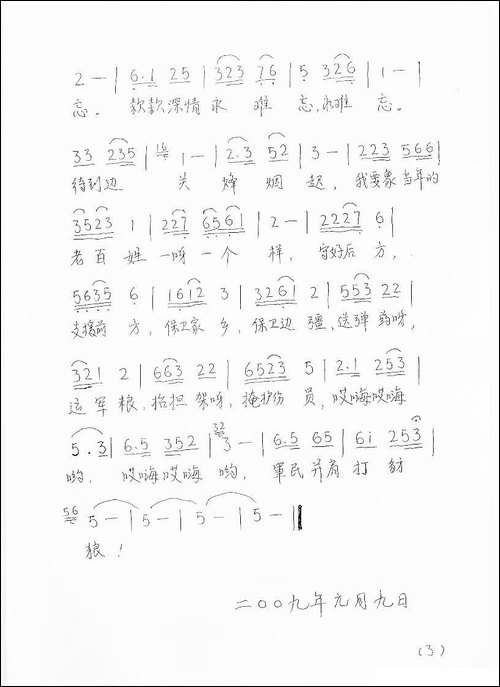 2 — | 6.1 25 | 323 76 | 5 326 | 1 — |
忘。 款款深情永 难 忘,永难 忘。
33 235 | 1 — | 2.3 52 | 3 — | 223 566 |
待到边 关 烽 烟 起, 我要象当年的
3523 1 | 227 6561 | 2 — | 2227 6 |
老百 姓 一呀一个 样, 守好后 方,
5635 6 | 1612 3 | 3261 2 | 553 22 |
支援前 方,保卫家 乡,保卫边 疆,送弹 药呀,
321 2 | 663 22 | 6523 5 | 2.1 253 |
运军 粮,抬担 架呀,掩护伤 员,哎嗨哎嗨
5.3 | 6.5 352 | 32 3 — | 6.5 65 | 6i 253 |
哟, 哎嗨哎嗨 哟, 军民并肩 打 豺
56 5 — | 5 — | 5 — | 5 — ||
狼!
二〇〇九年元月九日
(3)